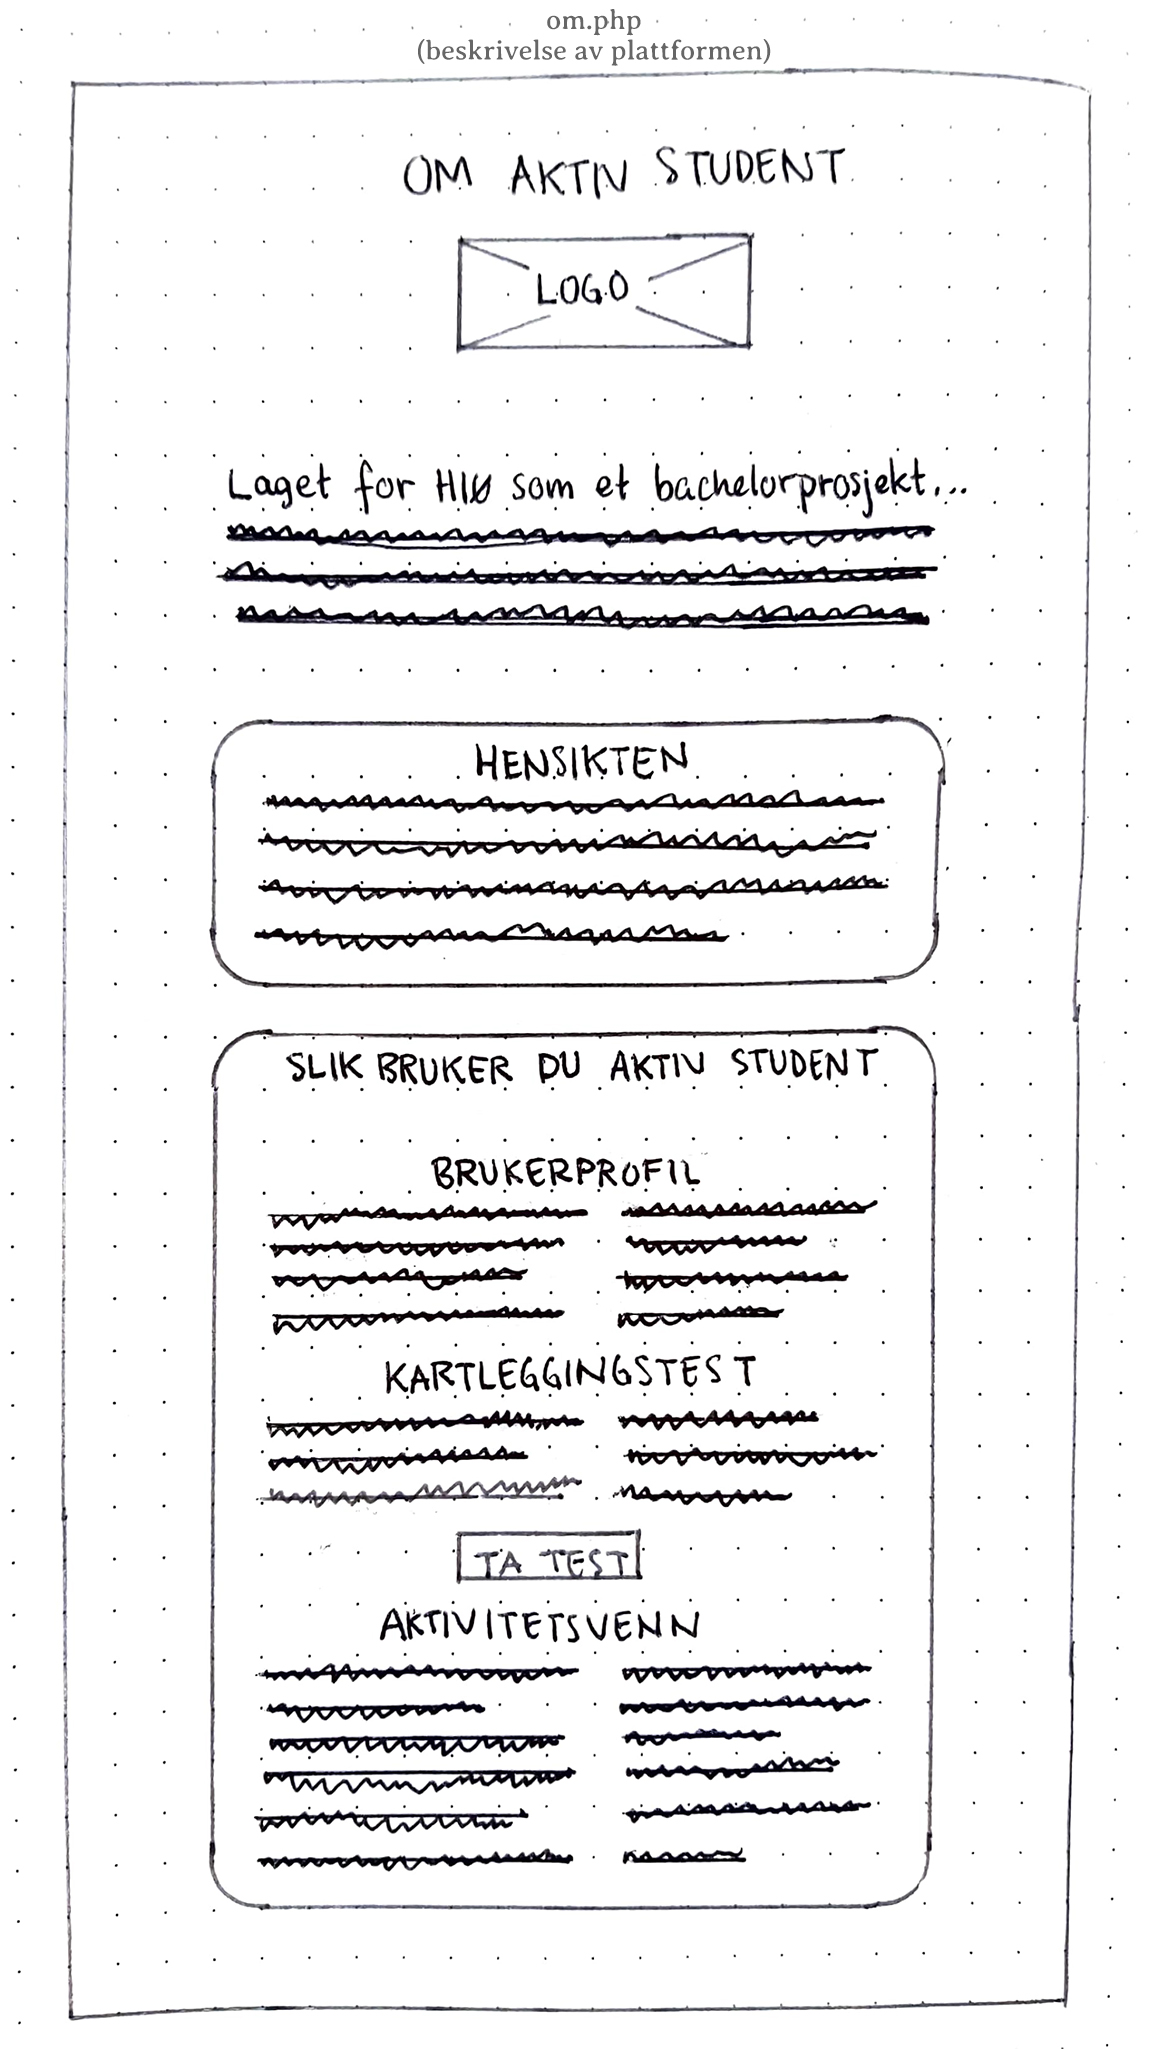 om.php
(beskrivelse av plattformen)
OM AKTIV STUDENT
LOGO
Laget for HIØ som et bachelorprosjekt...
HENSIKTEN
SLIK BRUKER DU AKTIV STUDENT
BRUKERPROFIL
KARTLEGGINGSTEST
TA TEST
AKTIVITETSVENN